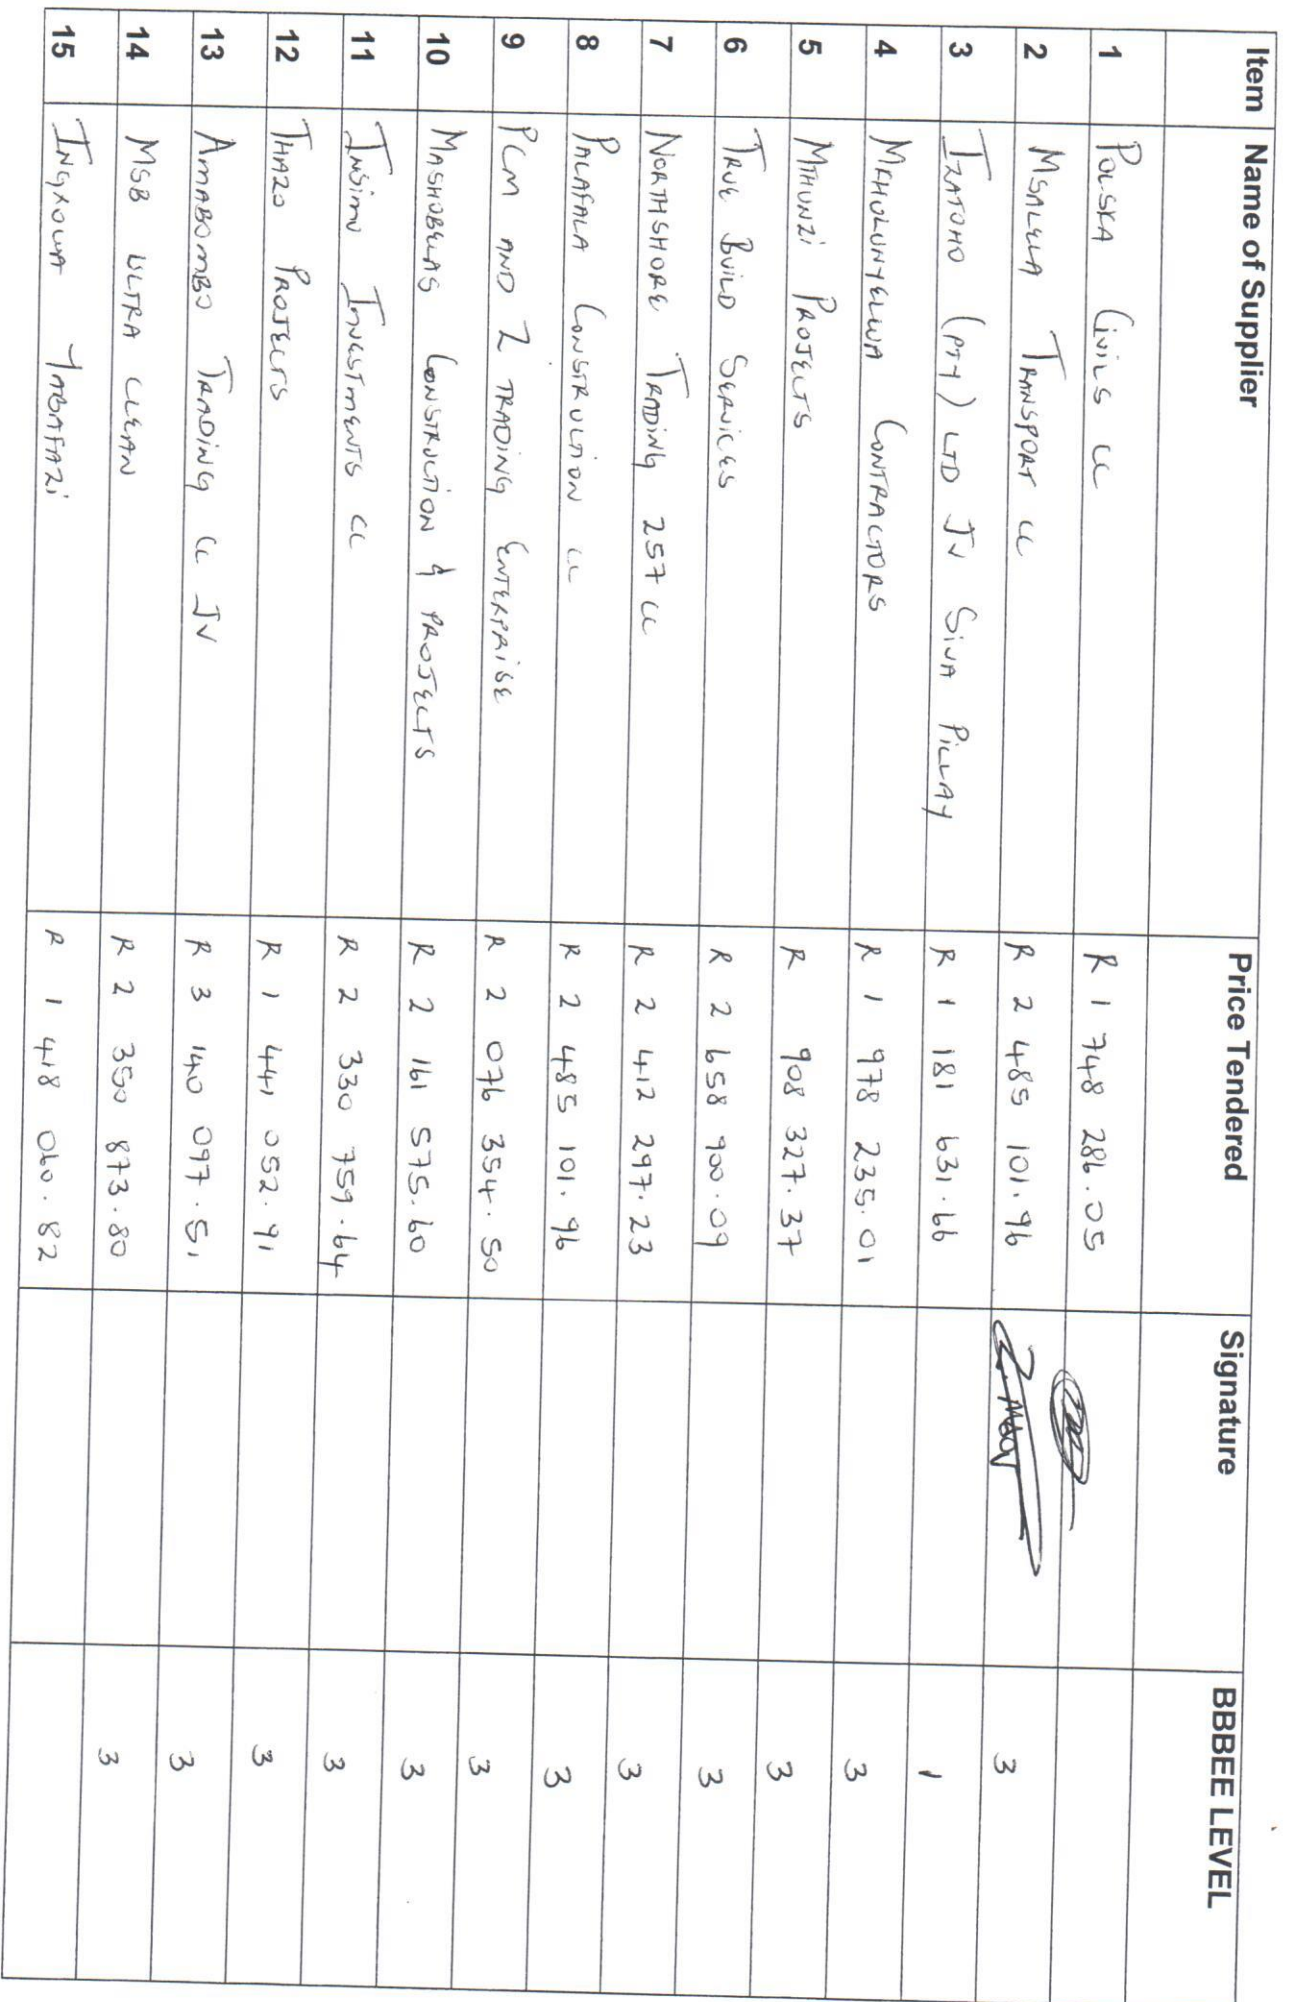 Item Name of Supplier Price Tendered Signature BBBEE LEVEL
1 POLSKA CIVILS CC R 1 748 286.05
2 MSALELA TRANSPORT CC R 2 485 101.96 3
3 IZATOHO (PTY) LTD JV SIVA PILLAY R 1 181 631.66 1
4 MKHULUNYELWA CONTRACTORS R 1 978 235.01 3
5 MTHUNZI PROJECTS R 908 327.37 3
6 TRUE BUILD SERVICES R 2 658 900.09 3
7 NORTHSHORE TRADING 257 CC R 2 412 297.23 3
8 PALAFALA CONSTRUCTION CC R 2 485 101.96 3
9 PCM AND Z TRADING ENTERPRISE R 2 076 354.50 3
10 MASHOBELAS CONSTRUCTION & PROJECTS R 2 161 575.60 3
11 INSIMU INVESTMENTS CC R 2 330 759.64 3
12 THAZO PROJECTS R 1 441 052.91 3
13 AMABOMBO TRADING CC JV R 3 140 097.51 3
14 MSB ULTRA CLEAN R 2 350 873.80 3
15 INGXOWA YABAFAZI R 1 418 060.82